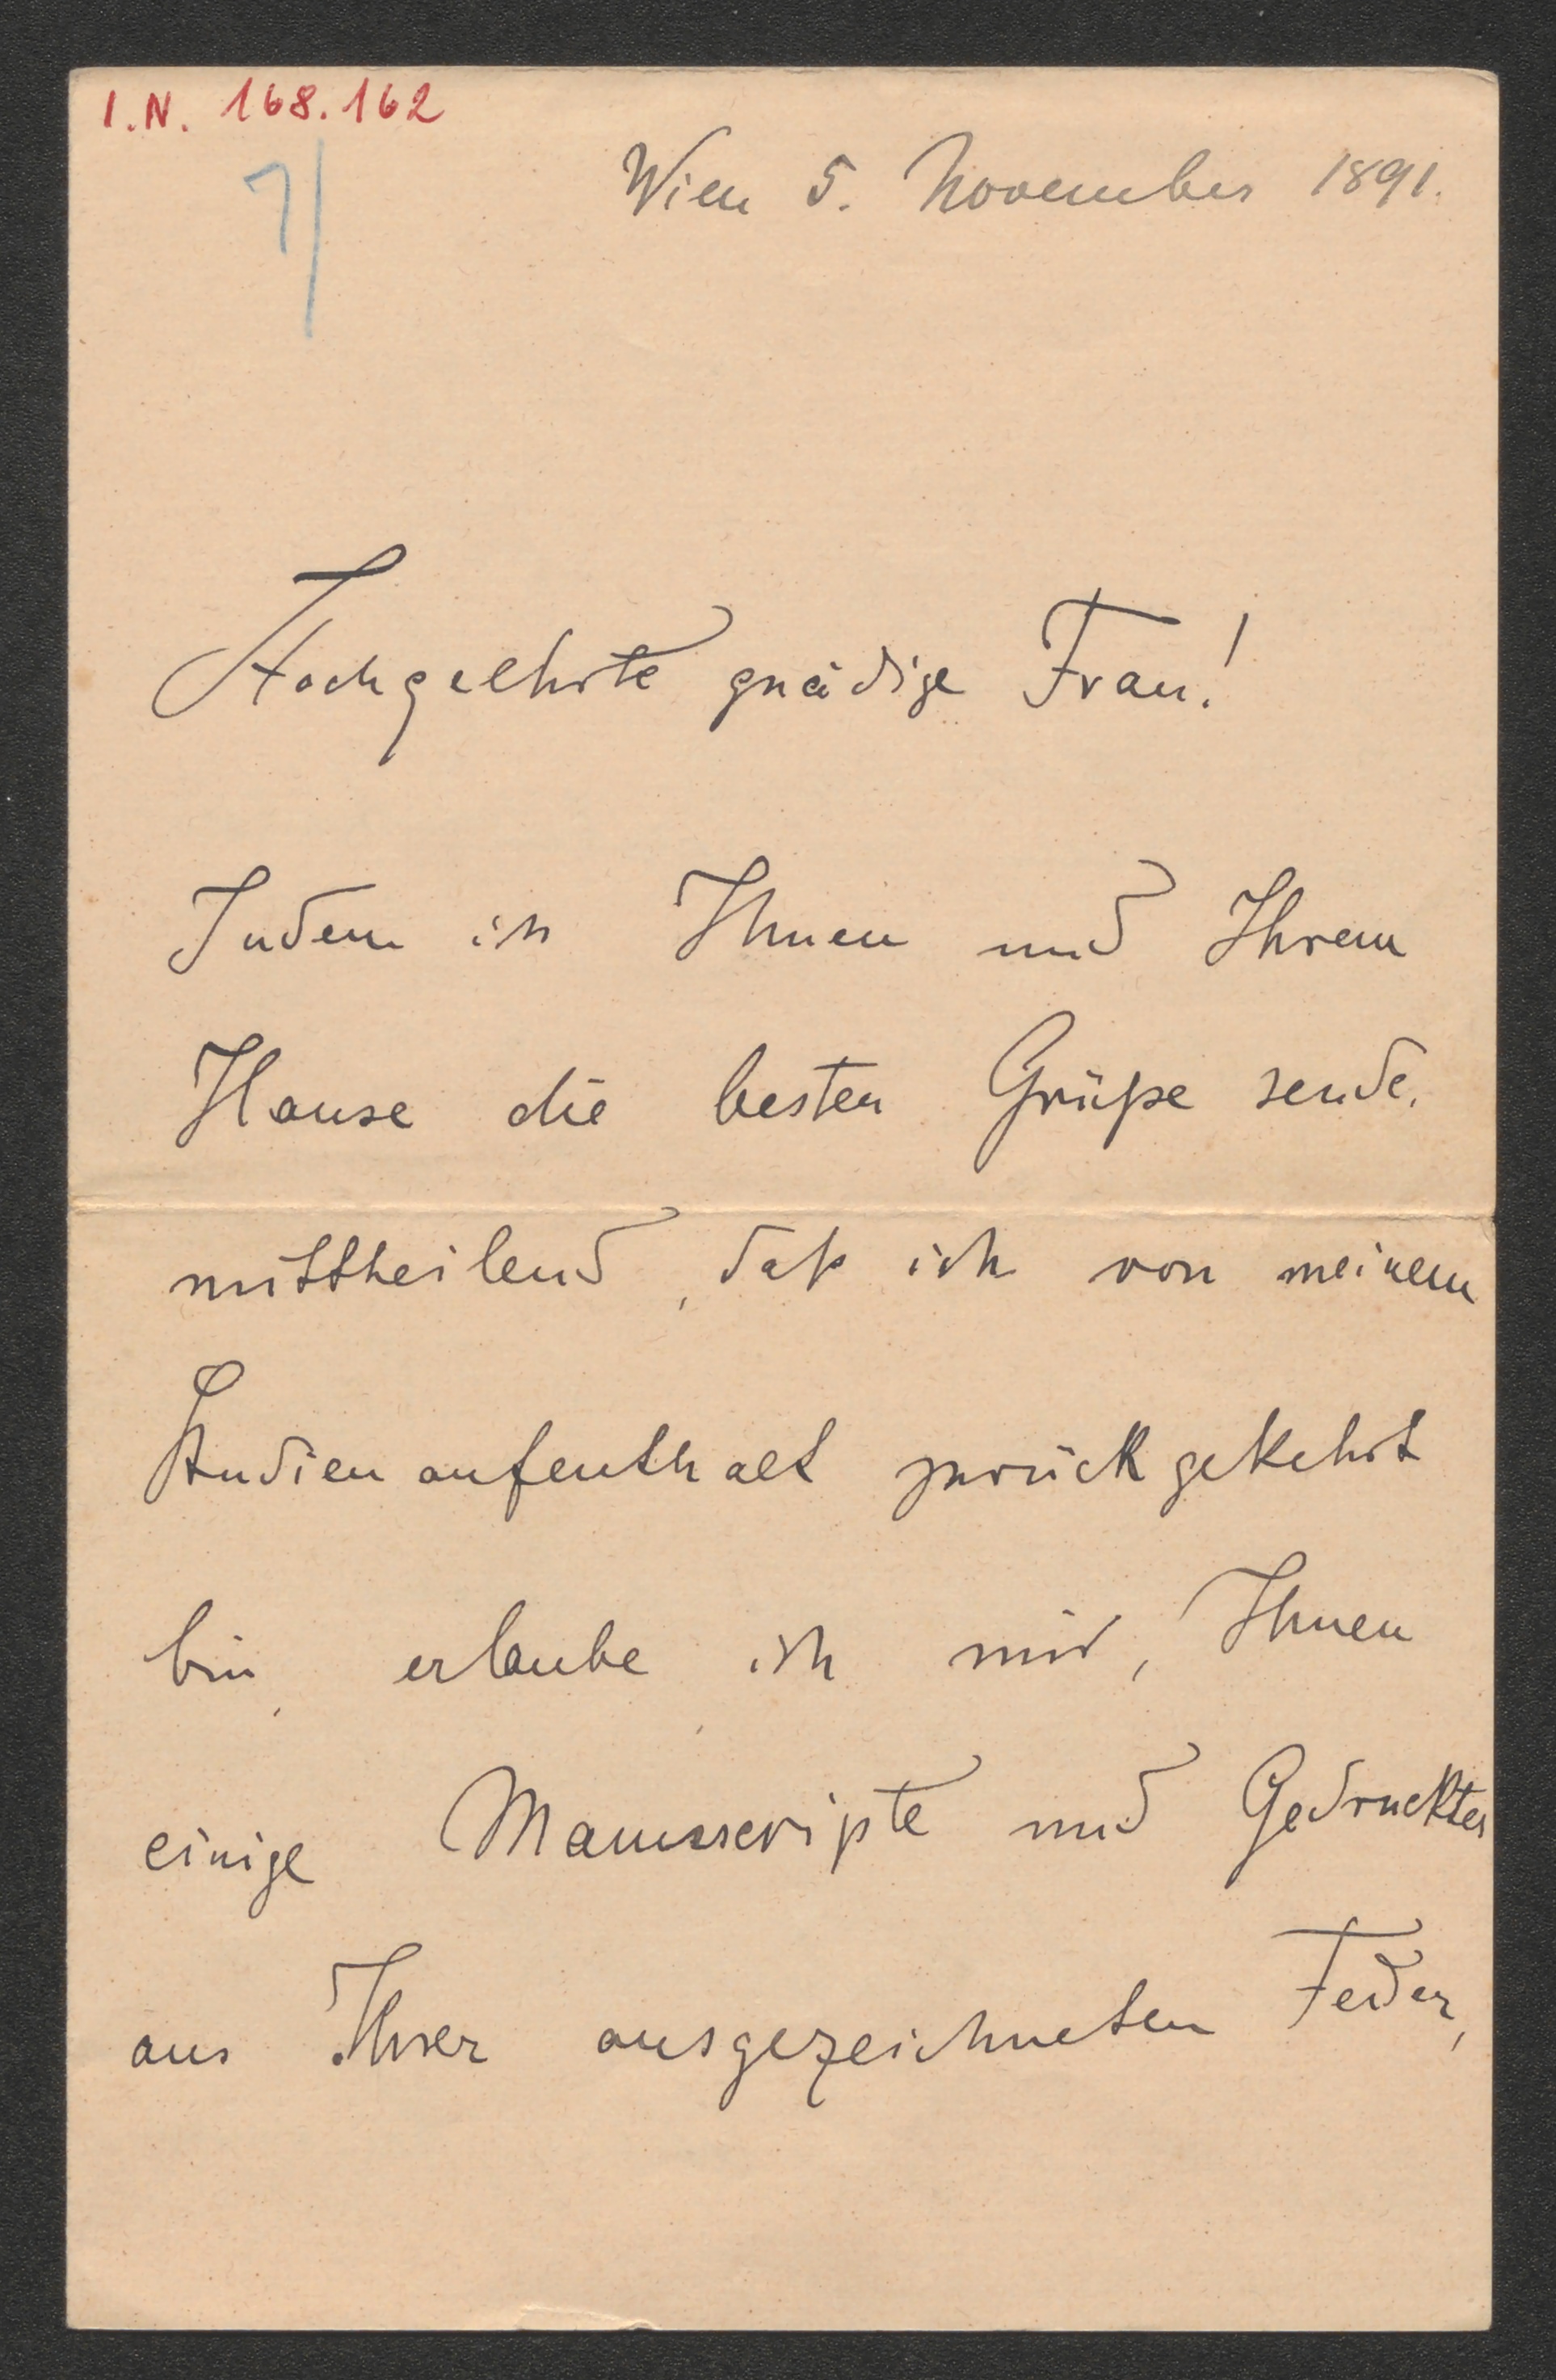 I.N. 168.162
7/
Wien 5. November 1891.
Hochgeehrte gnädige Frau!
Indem ich Ihnen und Ihrem
Hause die besten Grüße sende,
mittheilend, daß ich von meinem
Studienaufenthalt zurückgekehrt
bin, erlaube ich mir, Ihnen
einige Manuscripte und Gedrucktes
aus Ihrer ausgezeichneten Feder,